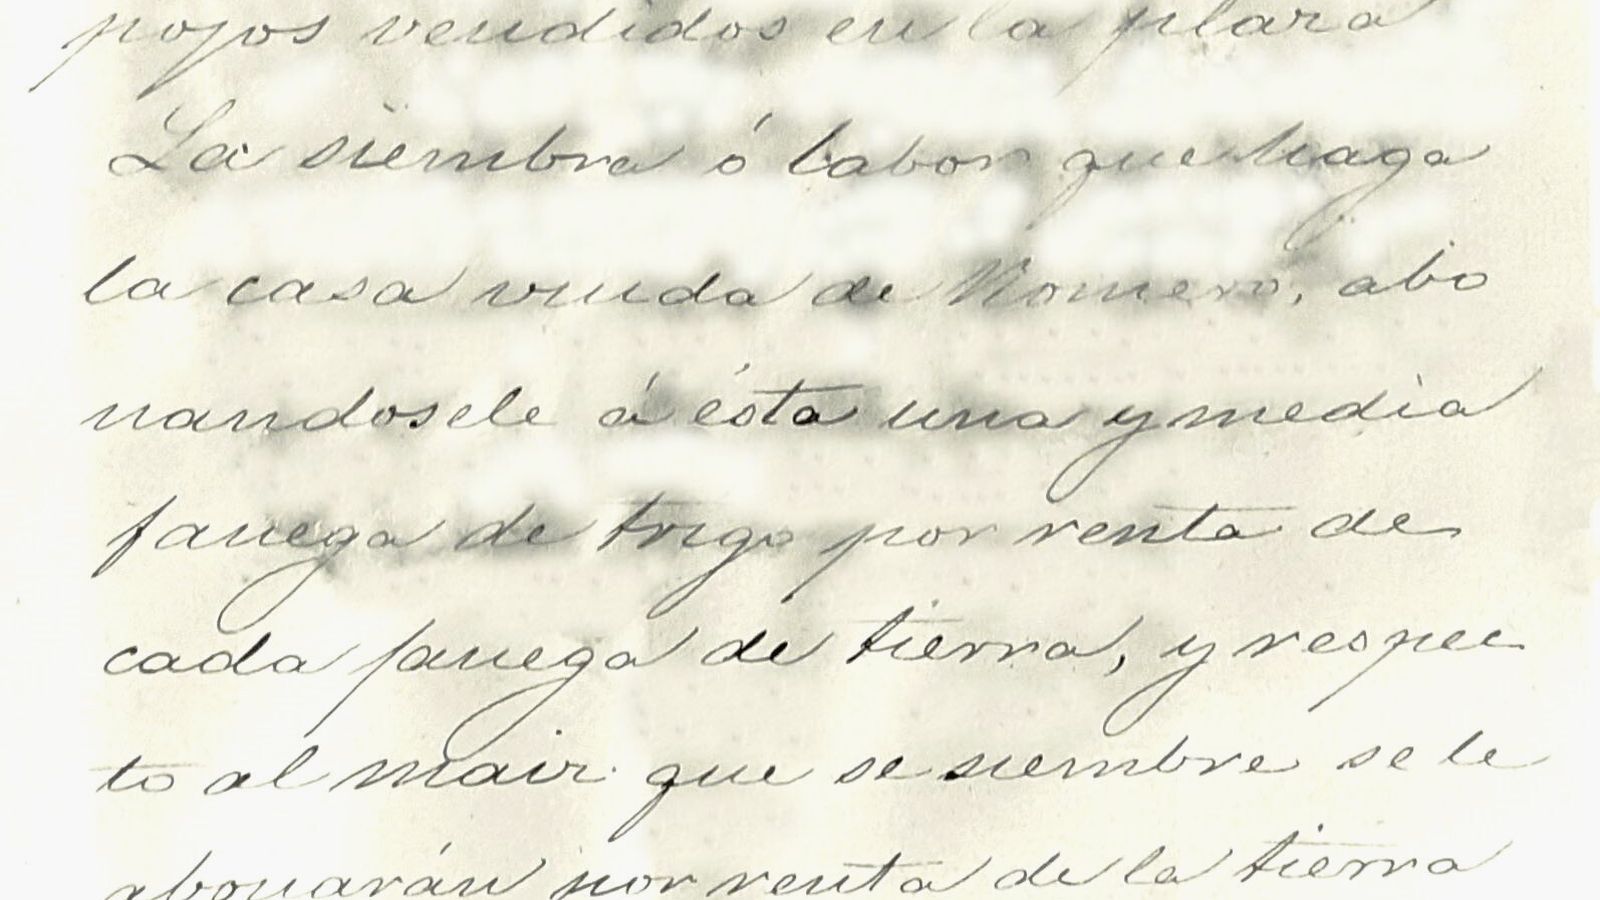 pojos vendidos en la plaza
La siembra ó labor que haga
la casa viuda de Romero, abo
nandosele á ésta una y media
fanega de trigo por renta de
cada fanega de tierra, y respec
to al maiz que se siembre se le
abonarán por renta de la tierra